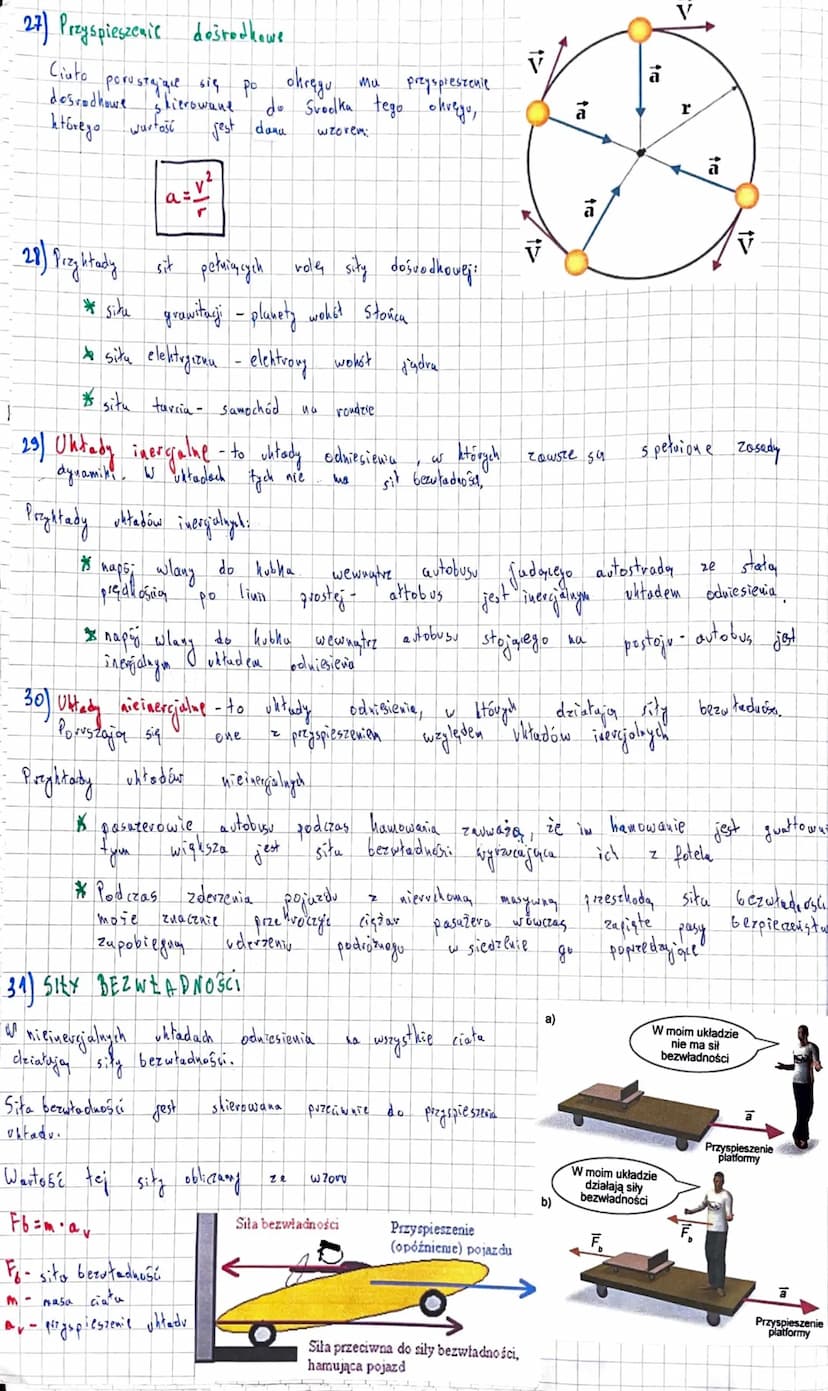 27) Przyspieszenie dośrodkowe
Ciało poruszające się po okręgu ma przyspieszenie
dośrodkowe skierowane do środka tego okręgu,
którego wartość jest dana wzorem:
a = v²/r
V
V
a
a
r
a
a
V
V
28) Przykłady sił pełniących rolę siły dośrodkowej:
* siła grawitacji - planety wokół Słońca
* siła elektryczna - elektrony wokół jądra
* siła tarcia - samochód na rondzie
29) Układy inercjalne - to układy odniesienia, w których zawsze są spełnione zasady
dynamiki. W układach tych nie ma sił bezwładności,
Przykłady układów inercjalnych:
* napój wlany do kubka wewnątrz autobusu jadącego autostradą ze stałą
prędkością po linii prostej - autobus jest inercjalnym układem odniesienia.
* napój wlany do kubka wewnątrz autobusu stojącego na postoju - autobus jest
inercjalnym układem odniesienia
30) Układy nieinercjalne - to układy odniesienia, w których działają siły bezwładności.
Poruszają się one z przyspieszeniem względem układów inercjalnych
Przykłady układów nieinercjalnych
* pasażerowie autobusu podczas hamowania zauważą, że im hamowanie jest
tym większa jest siła bezwładności wyrzucająca ich z fotela
* Podczas zderzenia pojazdu z nieruchomą masywną przeszkodą siła bezwładności
może znacznie przekroczyć ciężar pasażera wówczas zapięte pasy
zapobiegną uderzeniu podróżnego w siedzenie go poprzedzające
31) SIŁY BEZWŁADNOŚCI
W nieinercjalnych układach odniesienia na wszystkie ciała
działają siły bezwładności.
Siła bezwładności jest skierowana przeciwnie do przyspieszenia
układu.
Wartość tej siły obliczamy ze wzoru
Fb = m · au
Fb - siła bezwładność
m - masa ciała
au - przyspieszenie układu
a)
W moim układzie
nie ma sił
bezwładności
a
Przyspieszenie
platformy
b)
W moim układzie
działają siły
bezwładności
Fb
Fb
a
Przyspieszenie
platformy
Siła bezwładności
Przyspieszenie
(opóźnienie) pojazdu
Siła przeciwna do siły bezwładności,
hamująca pojazd